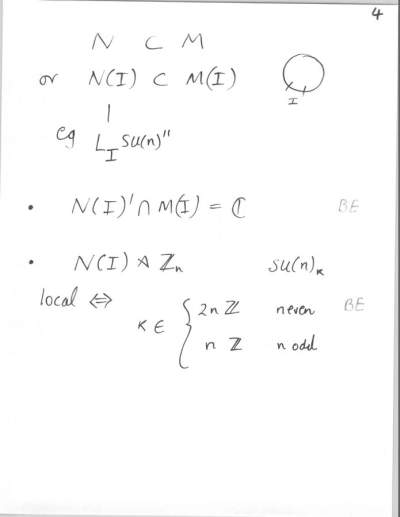 4
N ⊂ M
or N(I) ⊂ M(I)
I
|
eg L_I SU(n)''
• N(I)' ∩ M(I) = ℂ BE
• N(I) ⋊ ℤ_n SU(n)_k
local ⇔
k ∈ { 2n ℤ n even BE
n ℤ n odd